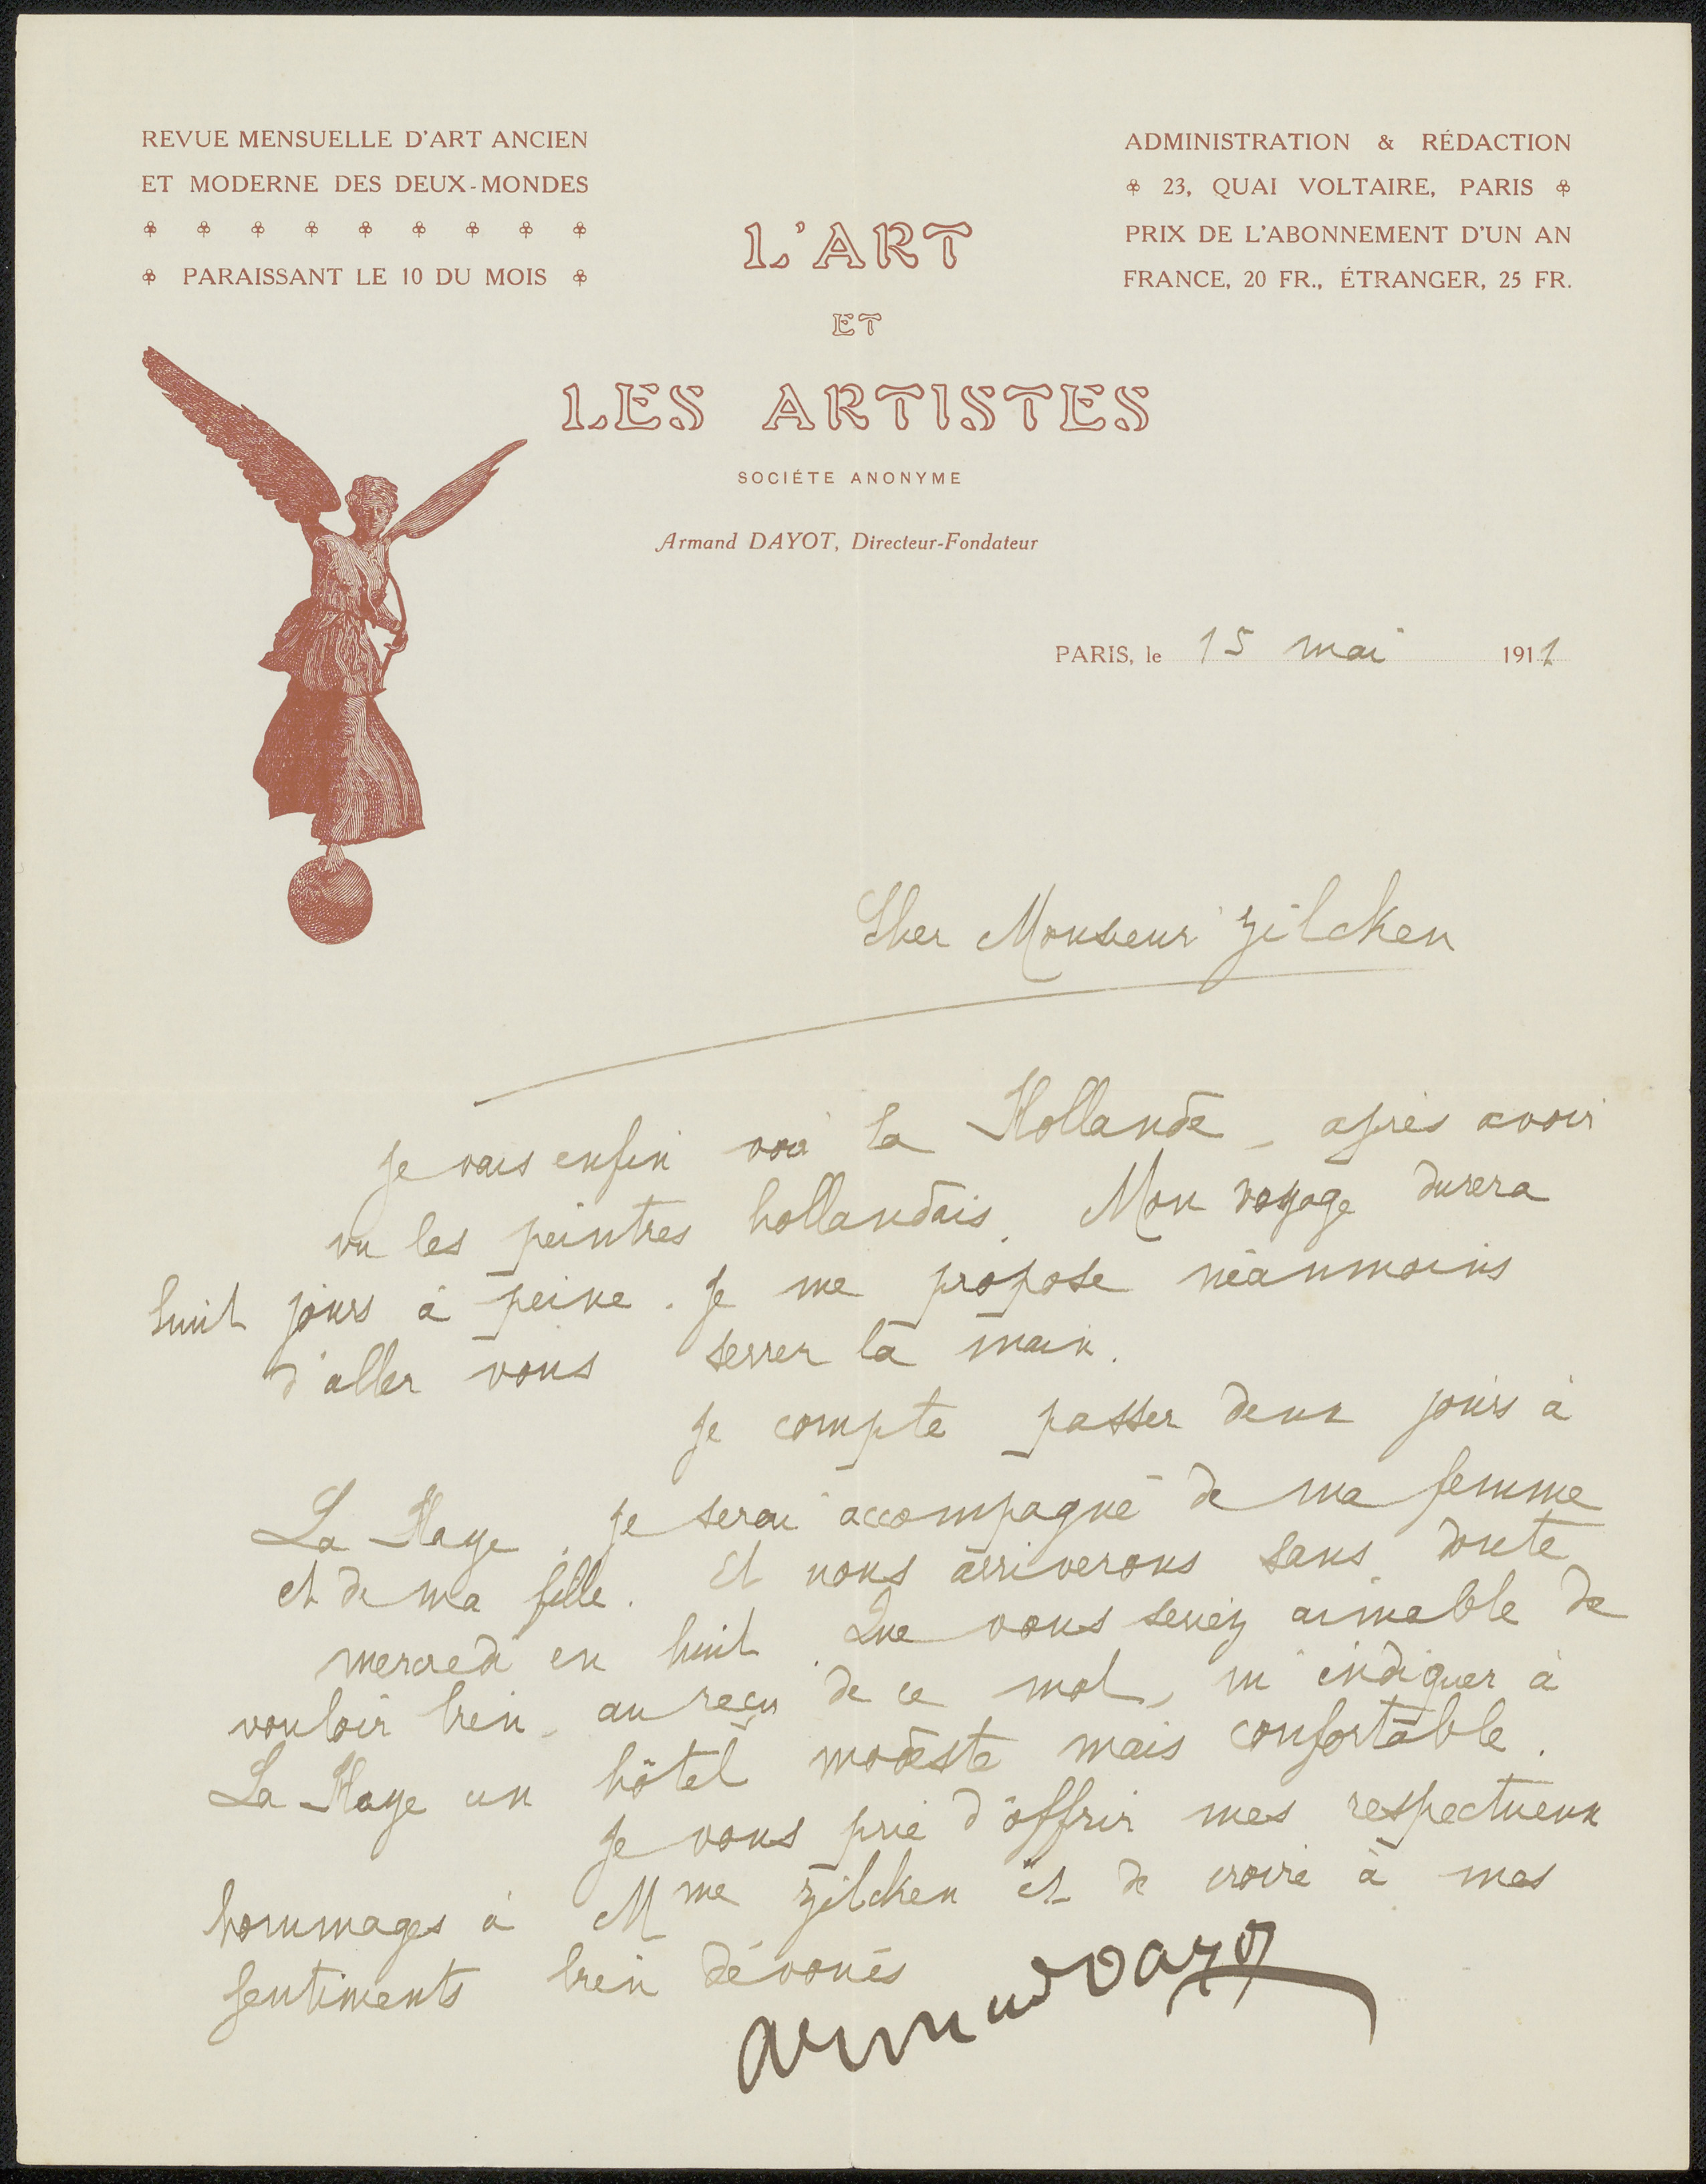 REVUE MENSUELLE D'ART ANCIEN
ET MODERNE DES DEUX-MONDES
PARAISSANT LE 10 DU MOIS
ADMINISTRATION & RÉDACTION
23, QUAI VOLTAIRE, PARIS
PRIX DE L'ABONNEMENT D'UN AN
FRANCE, 20 FR., ÉTRANGER, 25 FR.
L'ART
ET
LES ARTISTES
SOCIÉTE ANONYME
Armand DAYOT, Directeur-Fondateur
PARIS, le 15 mai 1911
Cher Monsieur Zilcken
Je vais enfin voir la Hollande – après avoir
vu les peintres hollandais. Mon voyage durera
huit jours à peine. Je me propose néanmoins
d'aller vous serrer la main.
Je compte passer deux jours à
La Haye. Je serai accompagné de ma femme
et de ma fille. Et nous arriverons sans doute
mercredi en huit. Que vous seriez aimable de
vouloir bien, au reçu de ce mot, m'indiquer à
La Haye un hôtel modeste mais confortable.
Je vous prie d'offrir mes respectueux
hommages à Mme Zilcken et de croire à mes
sentiments bien dévoués
Armand Dayot